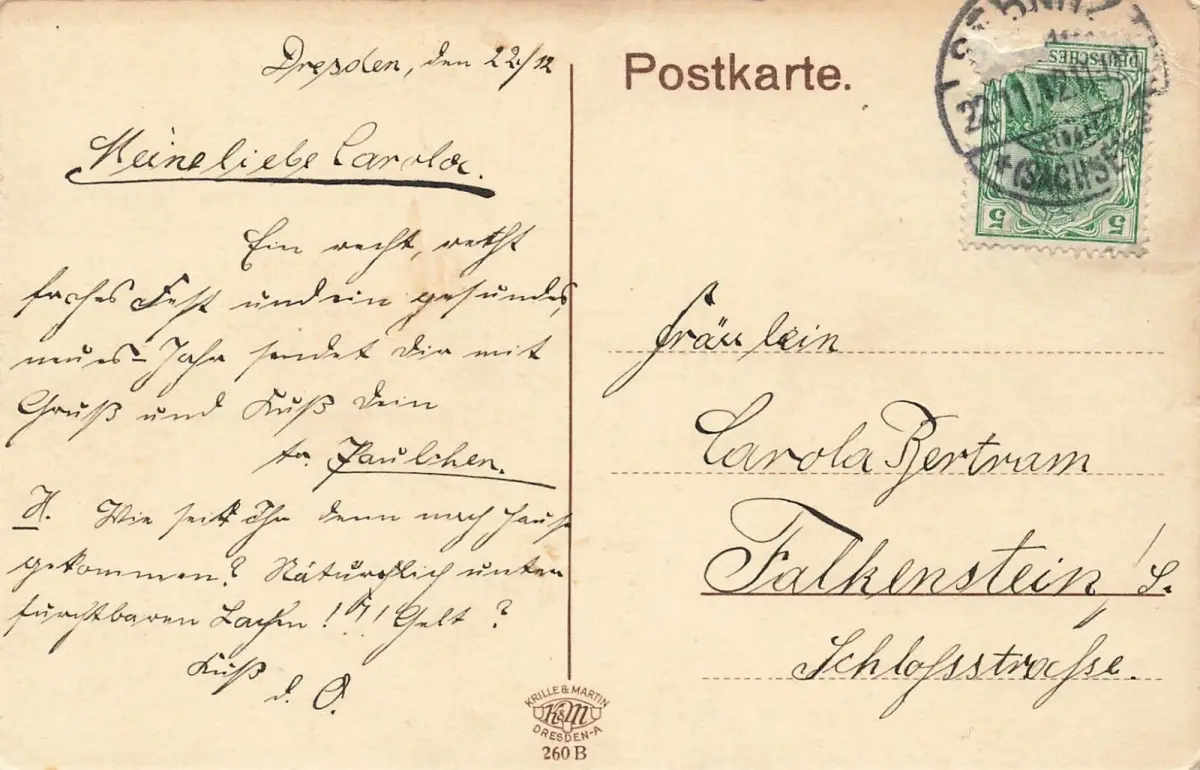 Dresden, den 22/12
Meine liebe Carola.
Ein recht, recht
frohes Fest und ein gesundes,
neues Jahr sendet Dir mit
Gruß und Kuß Dein
Paulchen.
Wie seit Ihr denn nach Hause
gekommen? Natürchlich unter
furchtbaren Lachen !?! Gelt?
Kuß
d. O.
Postkarte.
DEUTSCHES
22.11.12
(SACHSE
5 5
Fräulein
Carola Bertram
Falkenstein / S.
Schlossstrasse.
KRILLE & MARTIN
K&M
DRESDEN-A
260 B